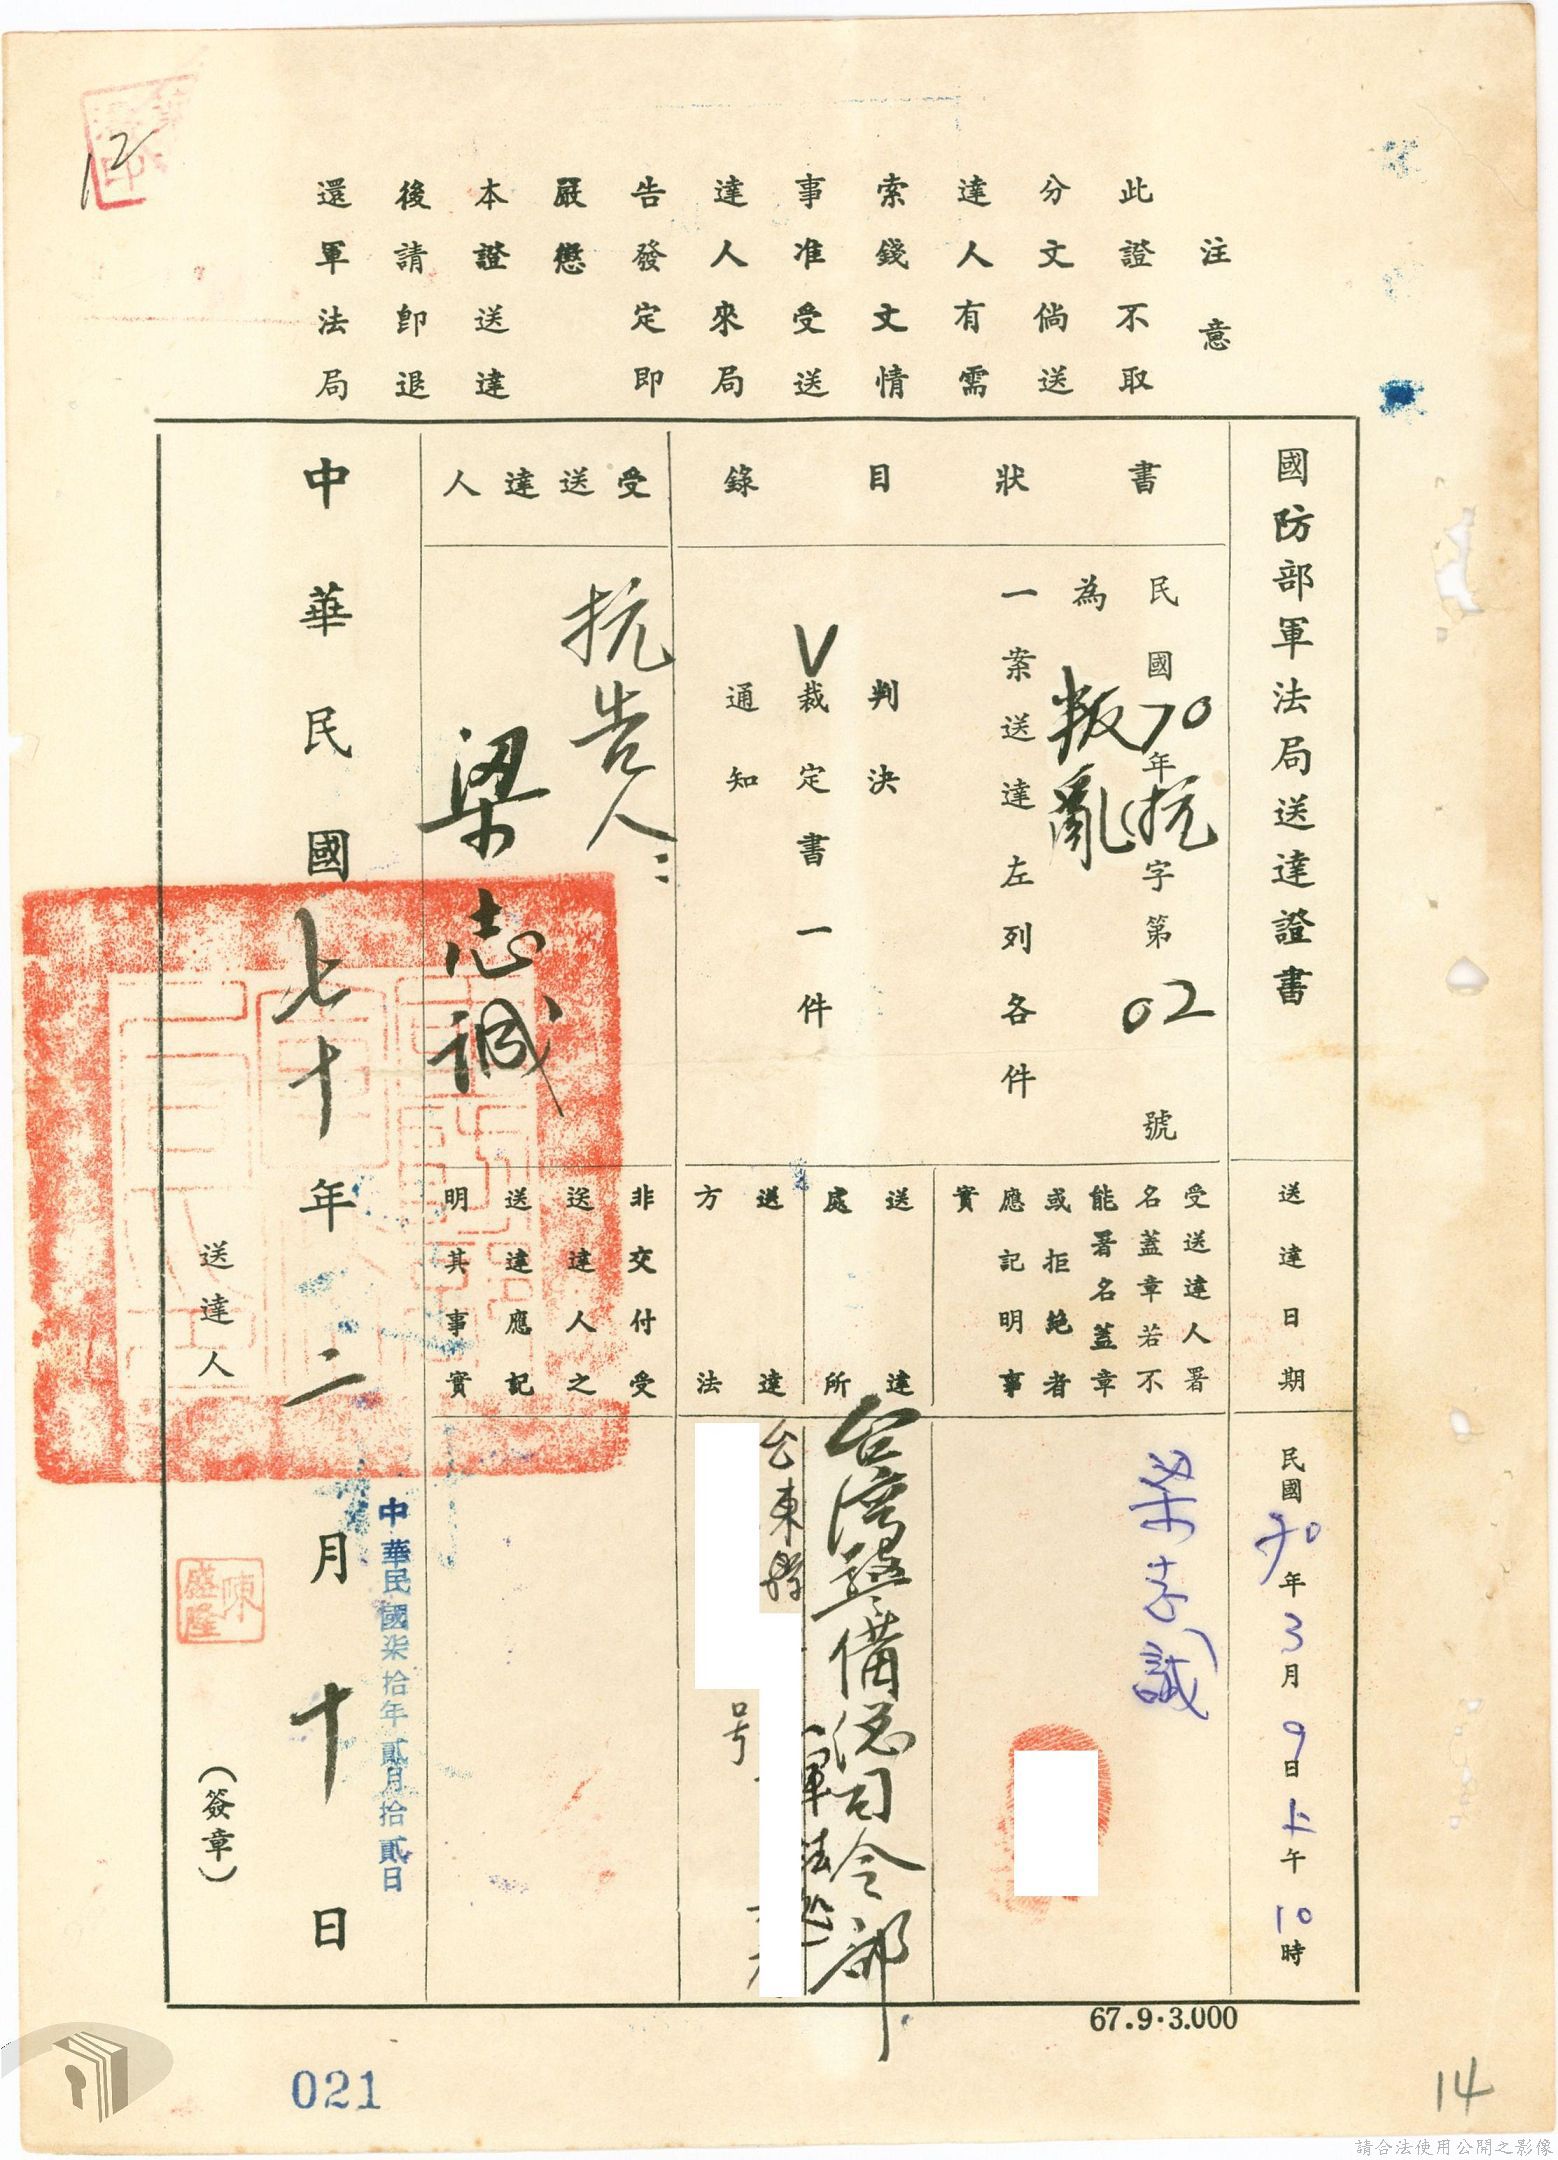 注意
此證不取
分文倘送
達人有需
索錢文情
事准受送
達人來局
告發定即
嚴懲
本證送達
後請即退
還軍法局
12
國防部軍法局送達證書
書狀目錄
民國70年抗字第02號
為叛亂
一案送達左列各件
判決
V裁定書一件
通知
受送達人
抗告人：
梁志誠
送達日期
民國70年3月9日上午10時
受送達人署
名蓋章若不
能署名蓋章
或拒絕者
應記明事
實
梁志誠
送達
處所
台灣警備總司令部
軍法處
送達
方法
台東縣
号
非交付受
送達人之
送達應記
明其事實
中華民國七十年二月十日
中華民國柒拾年貳月拾貳日
送達人
陳盛隆
（簽章）
67.9.3.000
021
14
請合法使用公開之影像